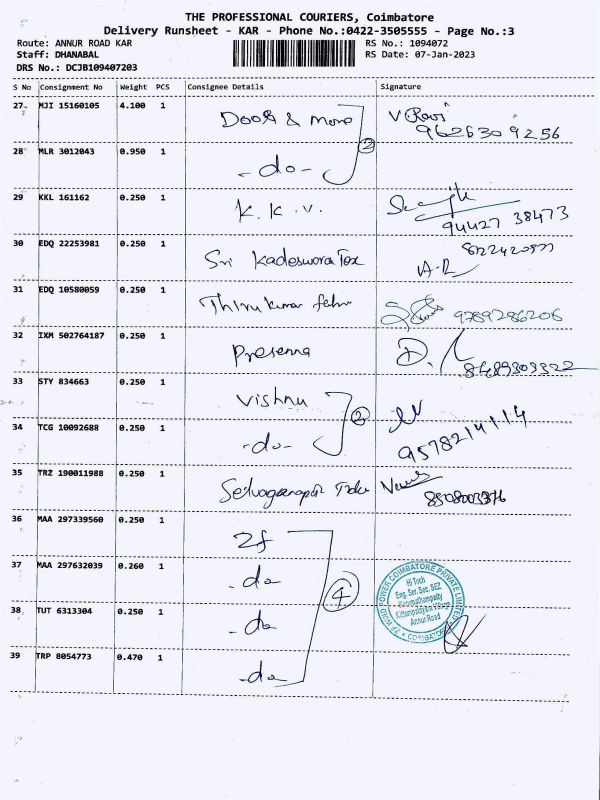 THE PROFESSIONAL COURIERS, Coimbatore
Delivery Runsheet - KAR - Phone No.:0422-3505555 - Page No.:3
Route: ANNUR ROAD KAR
Staff: DHANABAL
DRS No.: DCJB109407203
RS No.: 1094072
RS Date: 07-Jan-2023
S No Consignment No Weight PCS Consignee Details Signature
27 MJI 15160105 4.100 1 Door & More V Ravi 9626309256
28 MLR 3012043 0.950 1 -do- 2
29 KKL 161162 0.250 1 K. K. V. 94427 38473
30 EDQ 22253981 0.250 1 Sri Kadeswora Tex
31 EDQ 10580059 0.250 1 Thirukumar 9789286206
32 IXM 502764187 0.250 1 Presenna D. 8489303322
33 STY 834663 0.250 1 Vishnu
34 TCG 10092688 0.250 1 -do- 2 9578214114
35 TRZ 190011988 0.250 1
36 MAA 297339560 0.250 1 Zf
37 MAA 297632039 0.260 1 -do
38 TUT 6313304 0.250 1 -do 4
39 TRP 8054773 0.470 1 -do
ZF WIND POWER COIMBATORE PRIVATE LIMITED
Hi Tech
Eng. Ser. Sec. SEZ
Karumathampatty
Kittampalayam Village
Annur Road
COIMBATORE